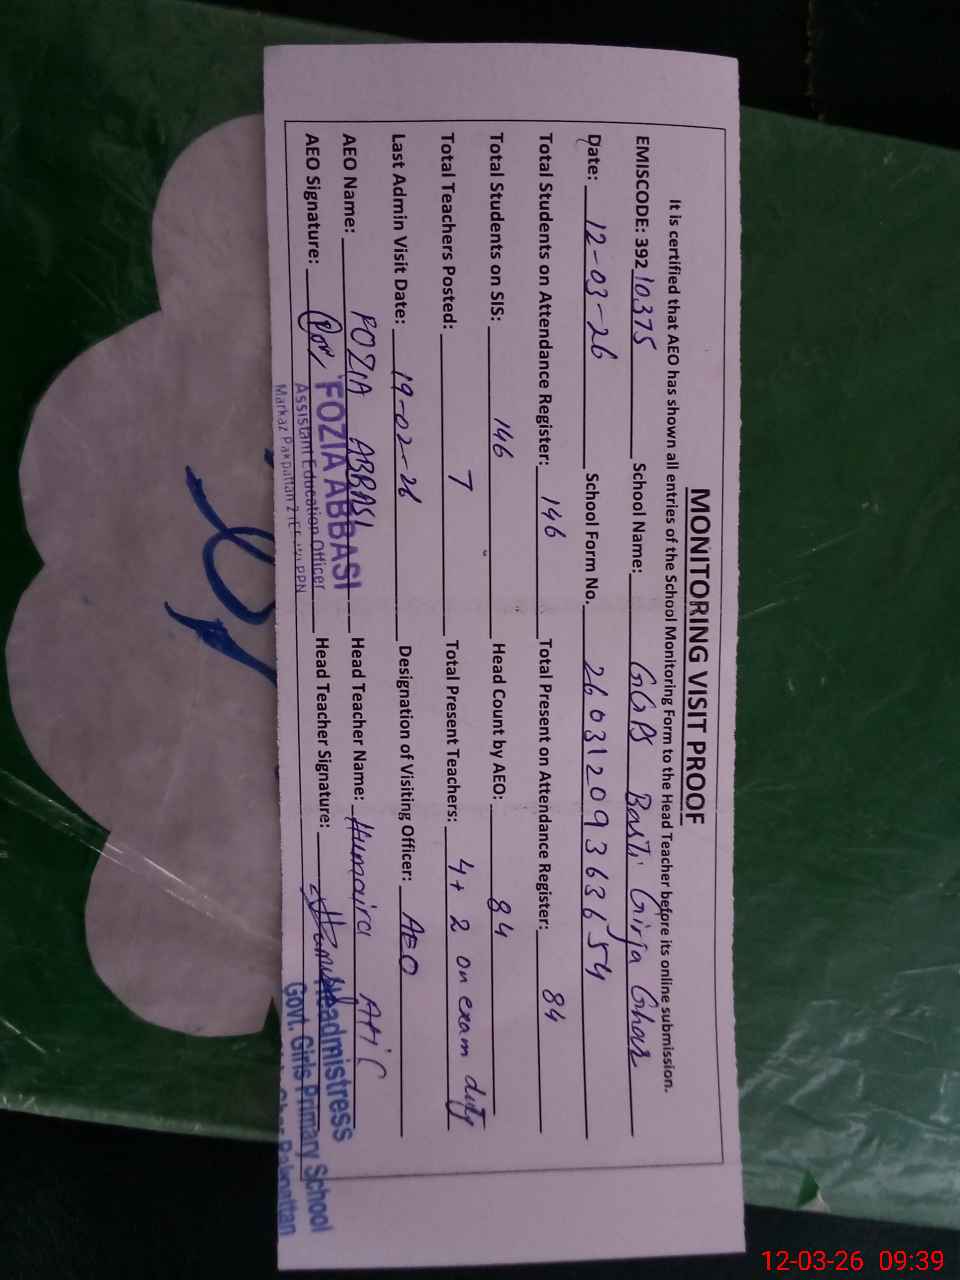 MONITORING VISIT PROOF
It is certified that AEO has shown all entries of the School Monitoring Form to the Head Teacher before its online submission.
EMISCODE: 39210375 School Name: GGPS Basti Girja Ghar
Date: 12-03-26 School Form No. 26031209363654
Total Students on Attendance Register: 146 Total Present on Attendance Register: 84
Total Students on SIS: 146 Head Count by AEO: 84
Total Teachers Posted: 7 Total Present Teachers: 4+ 2 on exam duty
Last Admin Visit Date: 19-02-26 Designation of Visiting Officer: AEO
AEO Name: FOZIA ABBASI Head Teacher Name: Humaira
AEO Signature: Head Teacher Signature:
FOZIA ABBASI
Assistant Education Officer
Markaz Pakpattan 2
PPN
Headmistress
Govt. Girls Primary School
Ghar Pakpattan
12-03-26 09:39